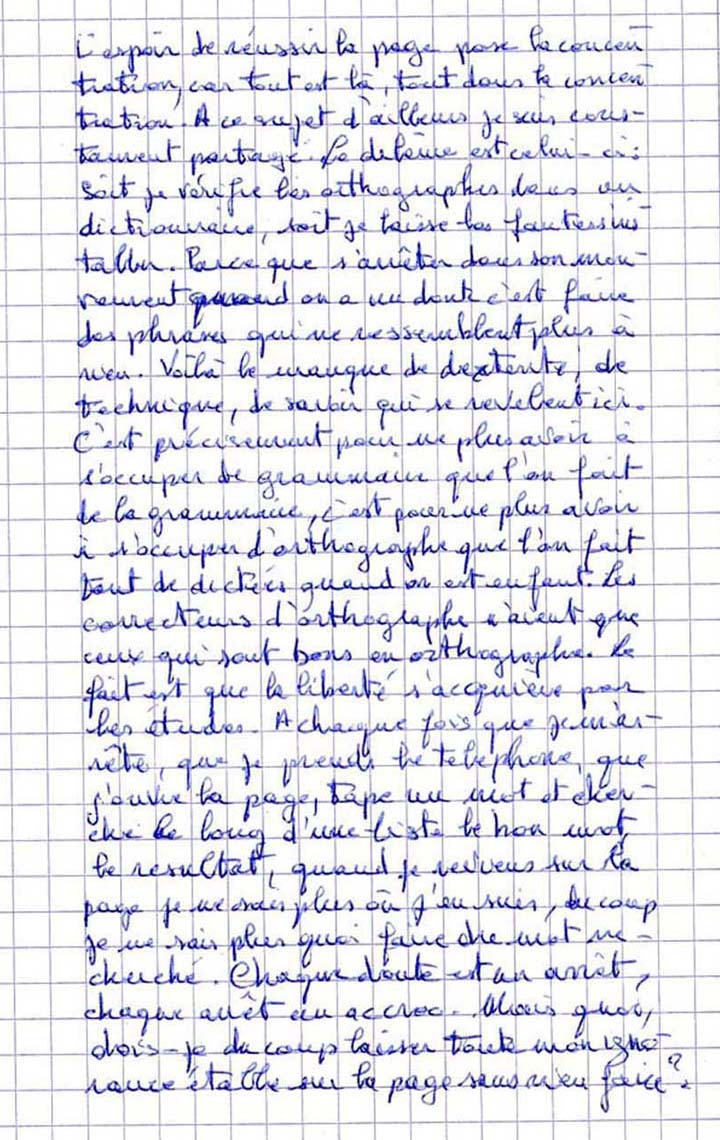 L'espoir de réussir la page pose la concen
tration, car tout est là, tout dans la concen
tration. A ce sujet d'ailleurs je suis cons-
tament partagé. Le dilème est celui-ci:
soit je vérifie les orthographes dans un
dictionnaire, soit je laisse les fautes s'ins
taller. Parce que s'arrêter dans son mou-
vement quand on a un doute c'est faire
des phrases qui ne ressemblent plus à
rien. Voilà le manque de dextérité, de
technique, de savoir qui se revelent ici.
C'est précisement pour ne plus avoir à
s'occuper de grammaire que l'on fait
de la grammaire, c'est pour ne plus avoir
à s'occuper d'orthographe que l'on fait
tant de dictées quand on est enfant. Les
correcteurs d'orthographe n'aient que
ceux qui sont bons en orthographe. Le
fait est que la liberté s'acquière par
les études. A chaque fois que je m'ar-
rête, que je prends le telephone, que
j'ouvre la page, tape un mot et cher-
che le long d'une liste le bon mot,
le resultat, quand je reviens sur la
page je ne sais plus où j'en suis, du coup
je ne sais plus quoi faire du mot re-
cherché. Chaque doute est un arrêt,
chaque arrêt un accroc. Mais quoi,
dois-je du coup laisser toute mon igno-
rance étallée sur la page sans rien faire?